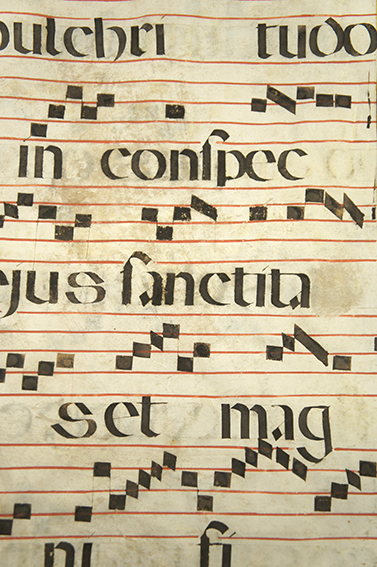 pulchri tudo
in conſpec
ejus ſanctita
set mag
ni fi